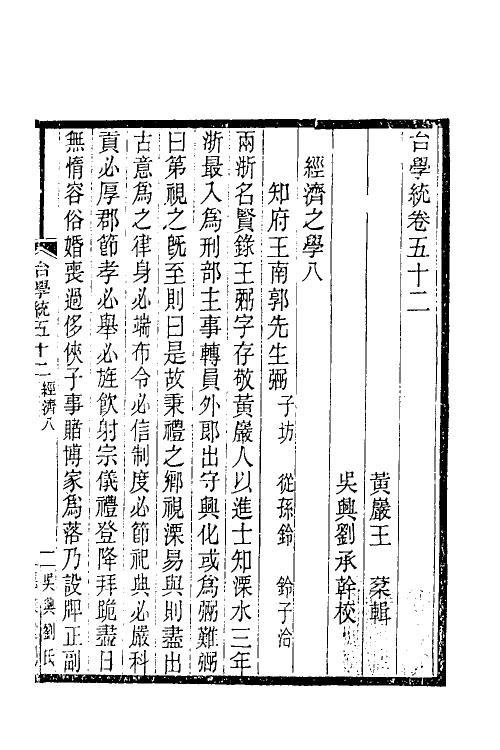 台學統卷五十二
黃巖王棻輯
吳興劉承幹校
經濟之學八
知府王南郭先生弼 子坊 從孫鈴 鈴子洽
兩浙名賢錄王弼字存敬黃巖人以進士知溧水三年
浙最入為刑部主事轉員外郎出守興化或為弼難弼
曰第視之旣至則曰是故秉禮之鄉視溧易與則盡出
古意為之律身必端布令必信制度必節祀典必嚴科
貢必厚郡節孝必舉必旌飮射宗儀禮登降拜跪盡日
無惰容俗婚喪過侈俠子事賭博家為落乃設牌正副
台學統五十二 經濟八 一 吳興劉氏